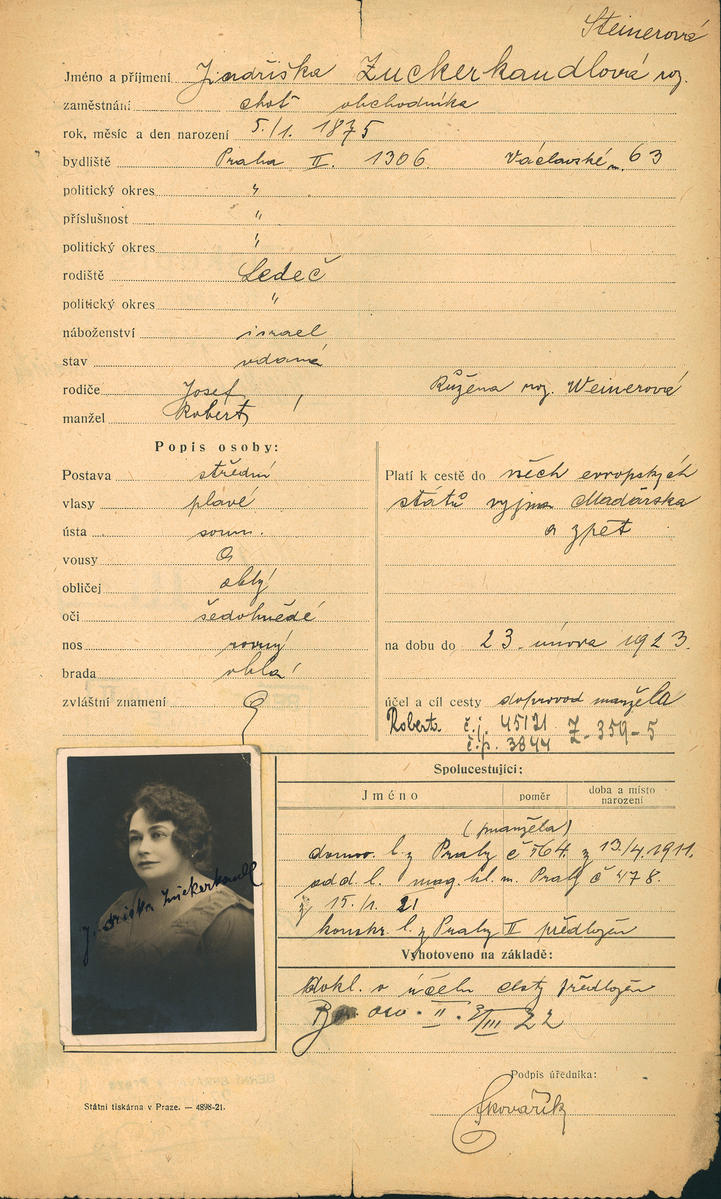 Steinerová
Jméno a příjmení Jindřiška Zuckerkandlová roz.
zaměstnání choť obchodníka
rok, měsíc a den narození 5./1. 1875
bydliště Praha II. 1306 Václavské n. 63
politický okres "
příslušnost "
politický okres "
rodiště Ledeč
politický okres "
náboženství israel
stav vdaná
rodiče Josef, Růžena roz. Weinerová
manžel Robert
Popis osoby:
Postava střední
vlasy plavé
ústa soum.
vousy 0
obličej oblý
oči šedohnědé
nos rovný
brada oblá
zvláštní znamení 0
Platí k cestě do všech evropských
států vyjma Maďarska
a zpět
na dobu do 23. února 1923.
účel a cíl cesty doprovod manžela
Roberta č.j. 45121 Z-359-5
č.p. 3844
Jindriska Zuckerkandl
Spolucestující:
Jméno poměr doba a místo narození
(manžela)
domov. l. z Prahy č 564. z 13/4. 1911.
odd. l. mag. hl. m. Prahy č 478.
z 15./1. 21
konskr. l. z Prahy II předložen
Vyhotoveno na základě:
Dokl. o účelu cesty předložen
II. 3/III 22
Podpis úředníka:
Skovařík
Státní tiskárna v Praze. — 4898-21.